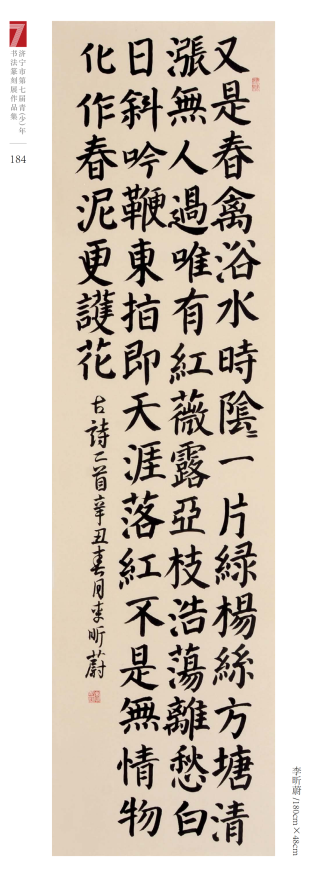 7
济宁市第七届青(少)年
书法篆刻展作品集
184
又是春禽浴水時陰〻一片緑楊絲方塘清
漲無人過唯有紅薇露亞枝浩蕩離愁白
日斜吟鞭東指即天涯落紅不是無情物
化作春泥更護花
古詩二首辛丑春月李昕蔚
李昕蔚/180cm×48cm